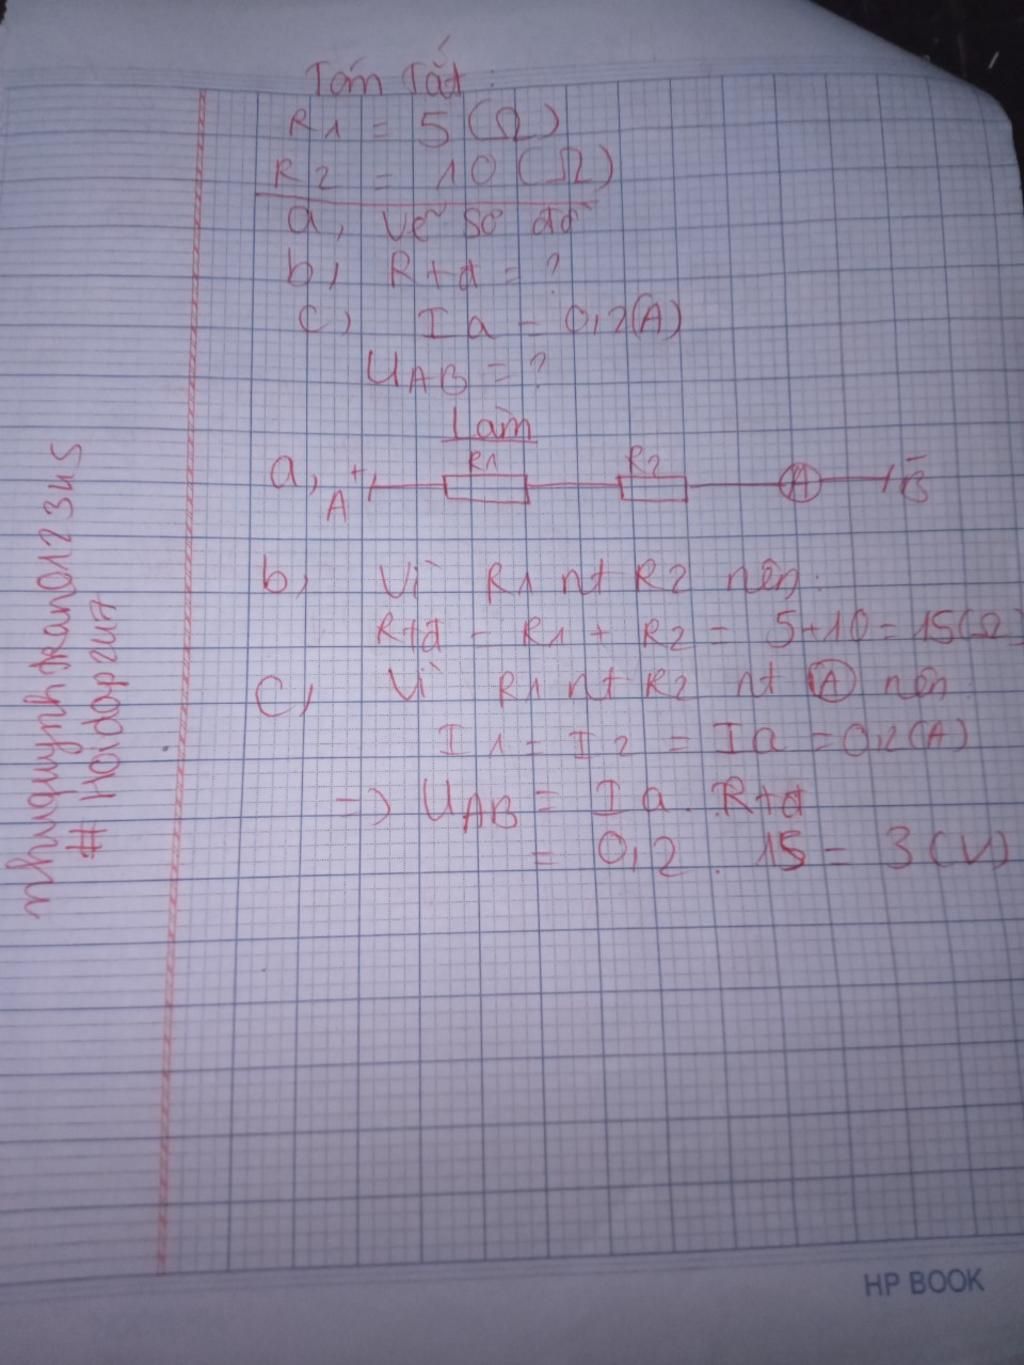 Tóm Tắt:
R1 = 5 (Ω)
R2 = 10 (Ω)
a, vẽ sơ đồ
b, Rtđ = ?
c, Ia = 0,2(A)
UAB = ?
Làm
a, A + R1 R2 A - B
b, Vì R1 nt R2 nên:
Rtđ = R1 + R2 = 5+10 = 15(Ω
c, Vì R1 nt R2 nt A nên
I1 = I2 = Ia = 0,2(A)
=> UAB = Ia . Rtđ
= 0,2 . 15 = 3 (V)
nhuquynhtrano12345
# Hoidap247
HP BOOK